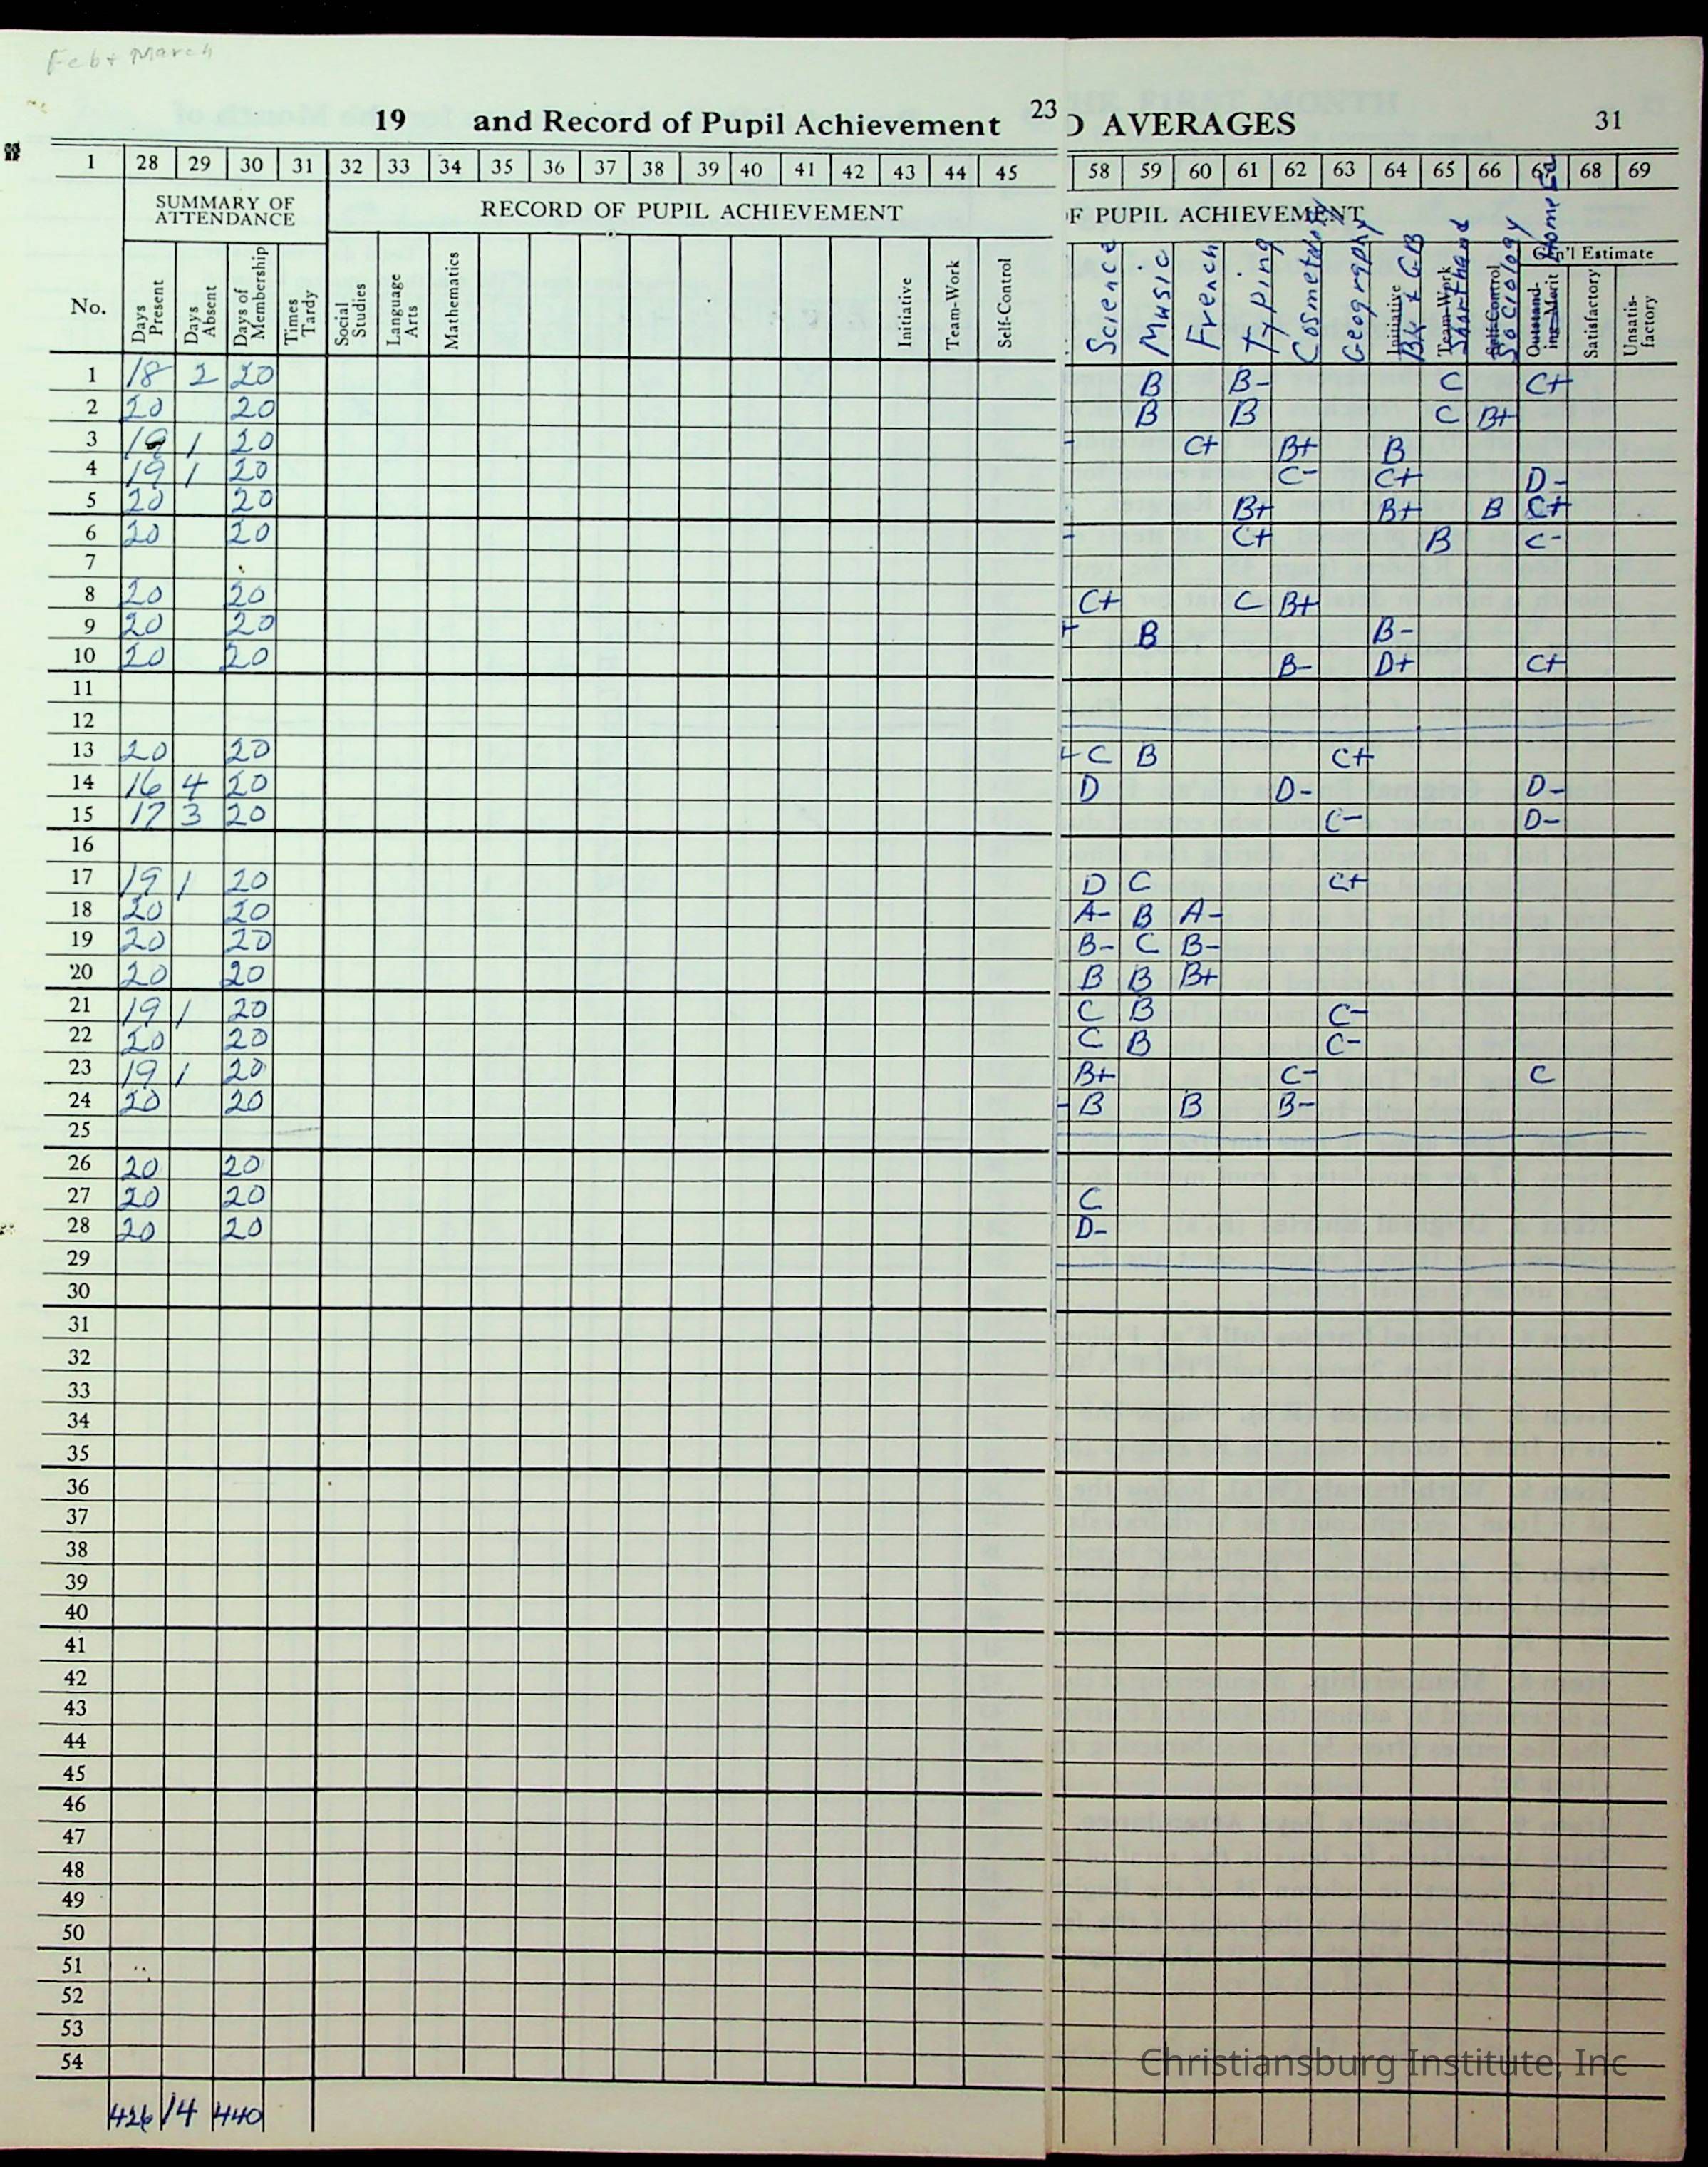 Feb + March
19 and Record of Pupil Achievement 23
D AVERAGES 31
1 28 29 30 31 32 33 34 35 36 37 38 39 40 41 42 43 44 45
58 59 60 61 62 63 64 65 66 67 68 69
SUMMARY OF ATTENDANCE RECORD OF PUPIL ACHIEVEMENT
F PUPIL ACHIEVEMENT
Gen'l Estimate
No. Days Present Days Absent Days of Membership Times Tardy Social Studies Language Arts Mathematics Initiative Team-Work Self-Control
Science Music French Typing Cosmetology Geography Initiative Bk + GB Team-Work Shorthand Self-Control Sociology Outstand-ing Merit Home Ec Satisfactory Unsatis-factory
1 18 2 20 B B- C C+
2 20 20 B B C B+
3 19 1 20 - C+ B+ B
4 19 1 20 C- C+ D-
5 20 20 B+ B+ B C+
6 20 20 - C+ B C-
7
8 20 20 C+ C B+
9 20 20 + B B-
10 20 20 B- D+ C+
11
12
13 20 20 + C B C+
14 16 4 20 D D- D-
15 17 3 20 C- D-
16
17 19 1 20 D C C+
18 20 20 A- B A-
19 20 20 B- C B-
20 20 20 B B B+
21 19 1 20 C B C-
22 20 20 C B C-
23 19 1 20 B+ C- C
24 20 20 - B B B-
25
26 20 20
27 20 20 C
28 20 20 D-
29
30
31
32
33
34
35
36
37
38
39
40
41
42
43
44
45
46
47
48
49
50
51
52
53
54
426 14 440
Christiansburg Institute, Inc